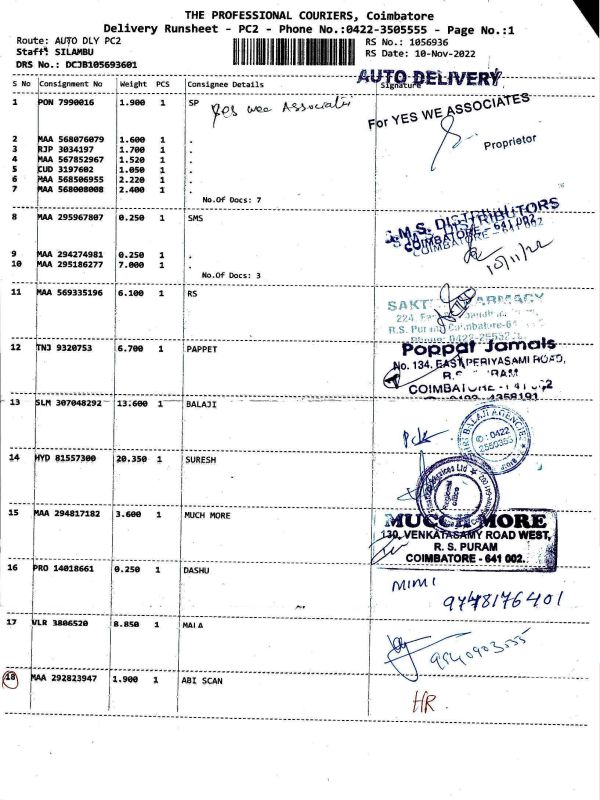 THE PROFESSIONAL COURIERS, Coimbatore
Delivery Runsheet - PC2 - Phone No.:0422-3505555 - Page No.:1
Route: AUTO DLY PC2
RS No.: 1056936
Staff: SILAMBU
RS Date: 10-Nov-2022
DRS No.: DCJB105693601
AUTO DELIVERY
S No Consignment No Weight PCS Consignee Details Signature
1 PON 7990016 1.900 1 SP Yes wee Associates
For YES WE ASSOCIATES
Proprietor
2 MAA 568076079 1.600 1 .
3 RJP 3034197 1.700 1 .
4 MAA 567852967 1.520 1 .
5 CUD 3197602 1.050 1 .
6 MAA 568506955 2.220 1 .
7 MAA 568008008 2.400 1 .
No.Of Docs: 7
8 MAA 295967807 0.250 1 SMS
S.M.S. DISTRIBUTORS
COIMBATORE - 641 002
9 MAA 294274981 0.250 1 .
10 MAA 295186277 7.000 1 .
10/11/22
No.Of Docs: 3
11 MAA 569335196 6.100 1 RS
R.S. Puram Coimbatore-64
12 TNJ 9320753 6.700 1 PAPPET
Poppat Jamals
No. 134, EAST PERIYASAMI ROAD,
COIMBATORE
13 SLM 307048292 13.600 1 BALAJI
SRI BALAJI AGENCIES
14 HYD 81557300 20.350 1 SURESH
15 MAA 294817182 3.600 1 MUCH MORE
MUCCH MORE
130, VENKATASAMY ROAD WEST,
R. S. PURAM
COIMBATORE - 641 002.
16 PRO 14018661 0.250 1 DASHU
MIMI
9778176401
17 VLR 3806520 8.850 1 MALA
9540903555
18 MAA 292823947 1.900 1 ABI SCAN
HR.